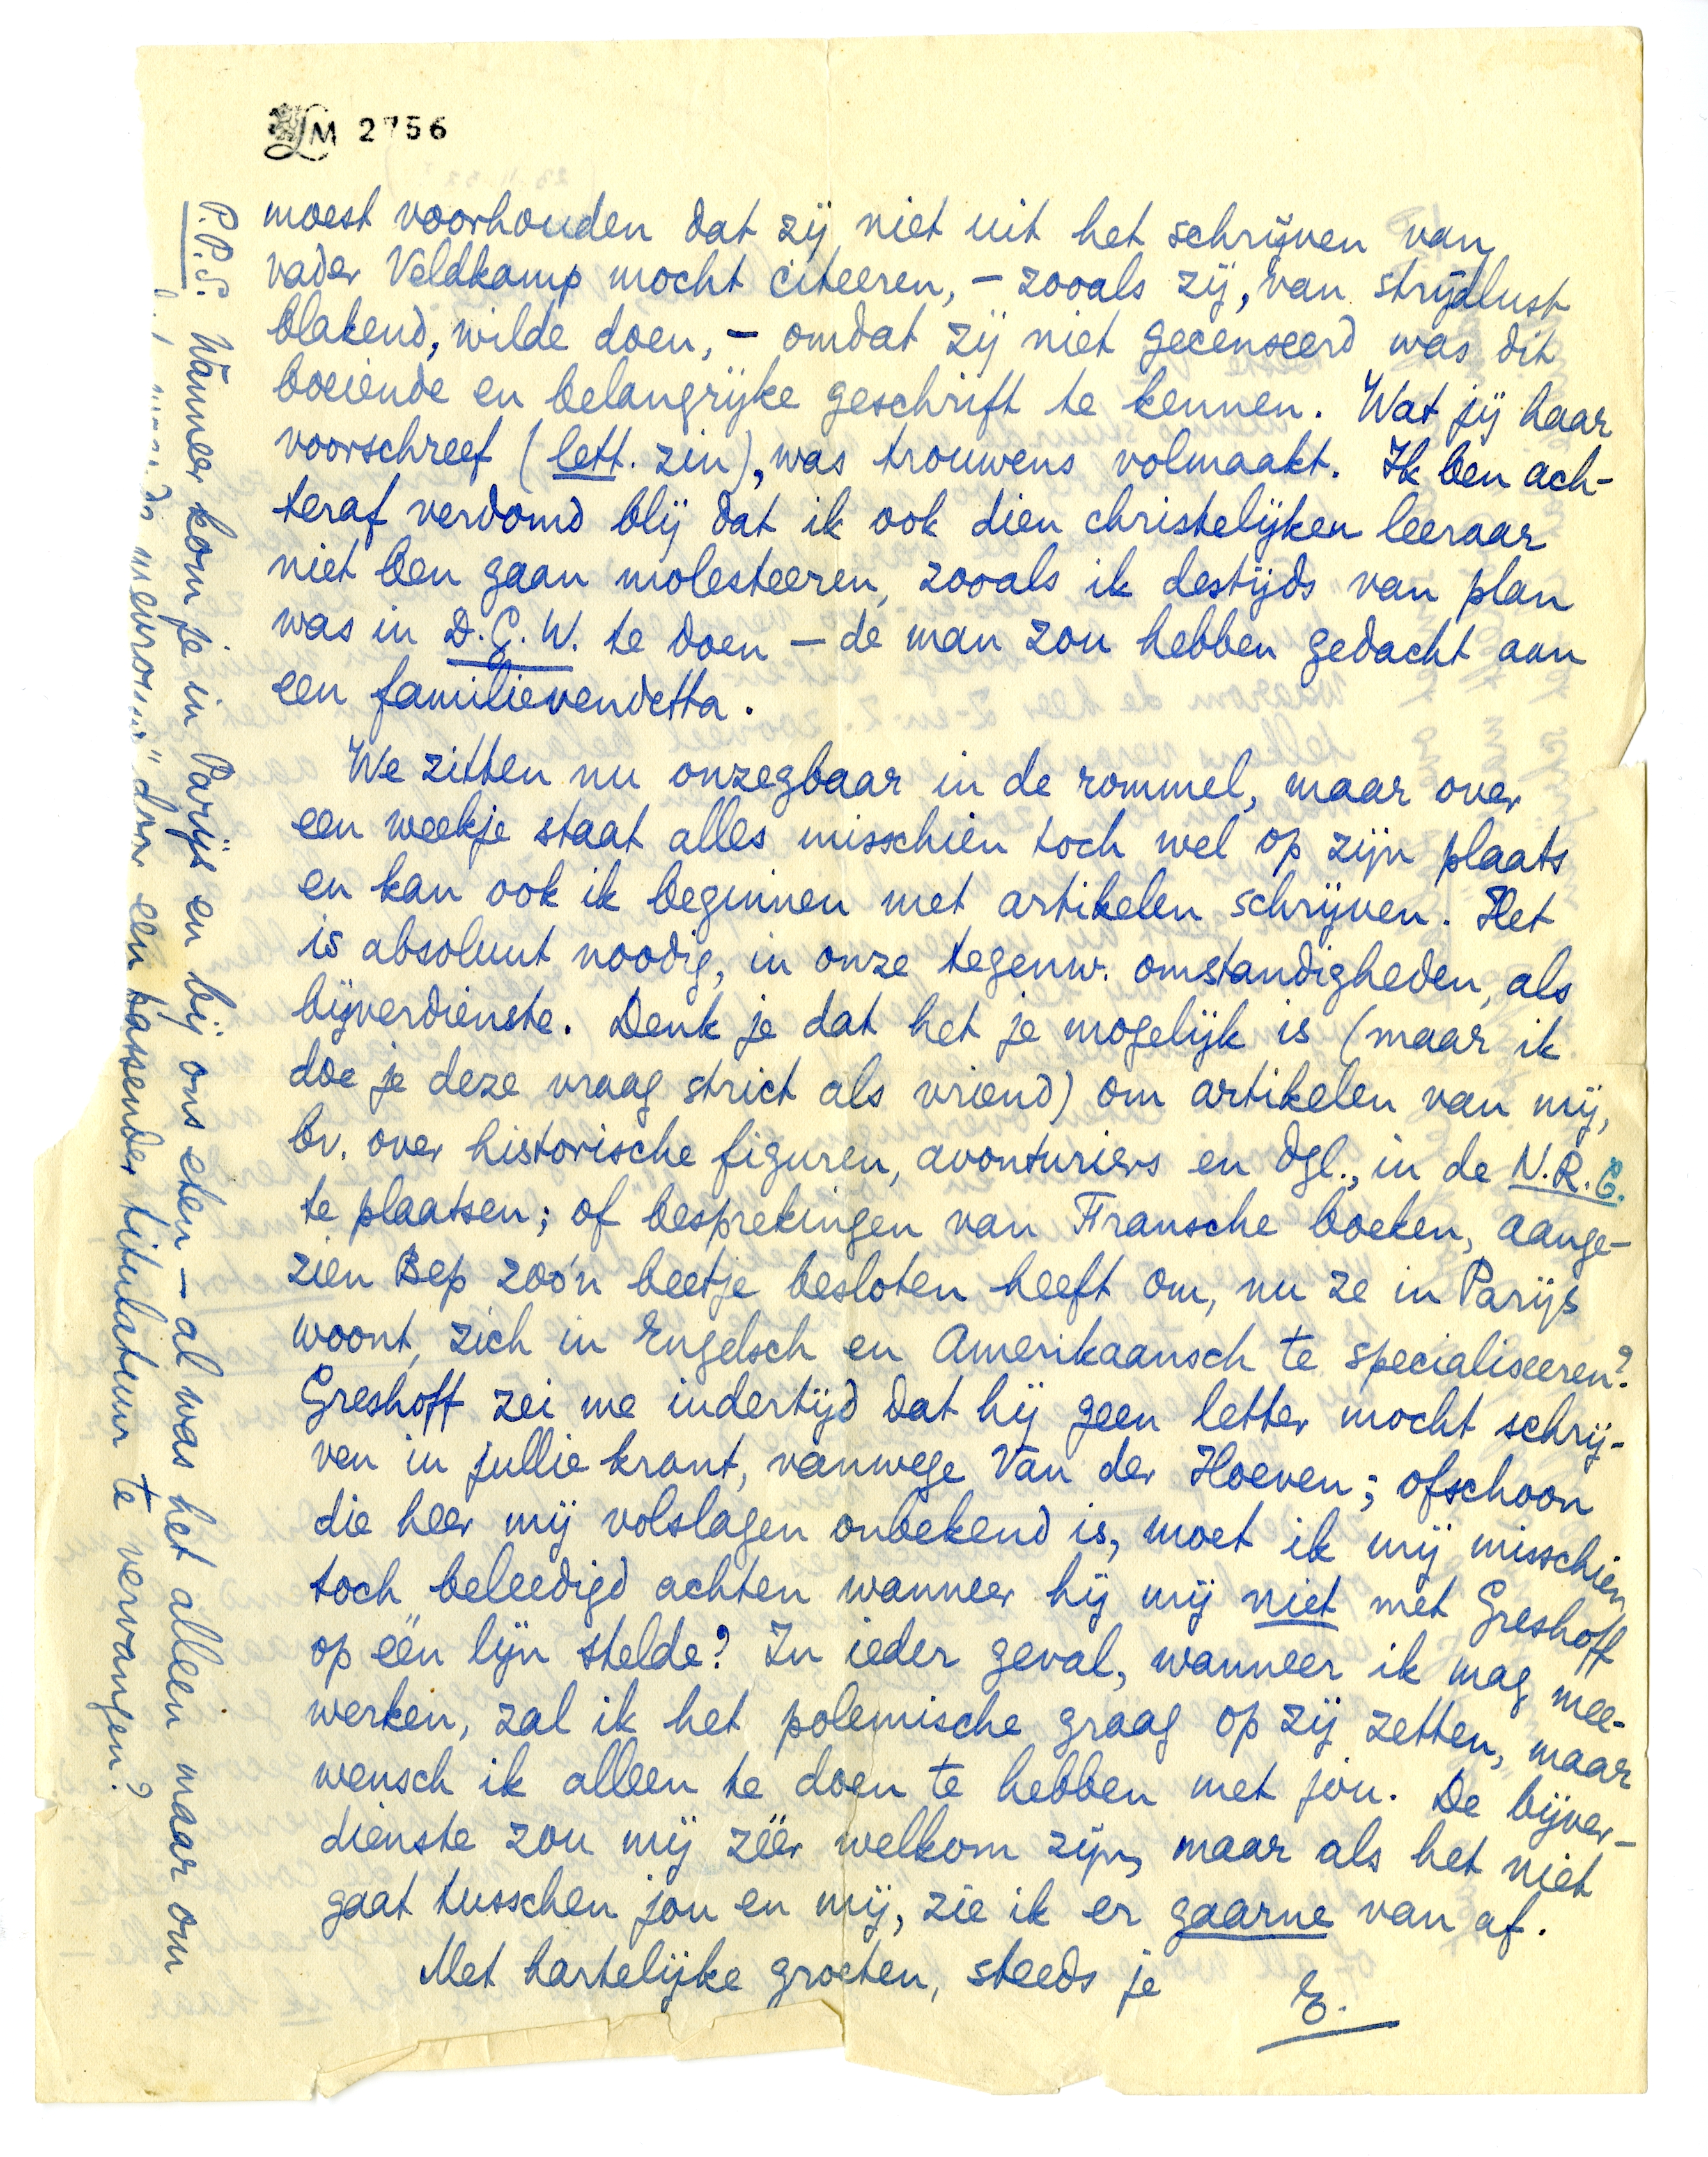 LM 2756
moest voorhouden dat zij niet uit het schrijven van
vader Veldkamp mocht citeeren, – zooals zij, van strijdlust
blakend, wilde doen, – omdat zij niet gecenseerd was dit
boeiende en belangrijke geschrift te kennen. Wat jij haar
voorschreef (lett. zin), was trouwens volmaakt. Ik ben ach-
teraf verdomd blij dat ik ook dien christelijken leeraar
niet ben gaan molesteeren, zooals ik destijds van plan
was in D.G.W. te doen – de man zou hebben gedacht aan
een familievendetta.
We zitten nu onzegbaar in de rommel, maar over
een weekje staat alles misschien toch wel op zijn plaats
en kan ook ik beginnen met artikelen schrijven. Het
is absoluut noodig, in onze tegenw. omstandigheden, als
bijverdienste. Denk je dat het je mogelijk is (maar ik
doe je deze vraag strict als vriend) om artikelen van mij,
bv. over historische figuren, avonturiers en dgl., in de N.R.C.
te plaatsen; of besprekingen van Fransche boeken, aange-
zien Bep zoo'n beetje besloten heeft om, nu ze in Parijs
woont, zich in Engelsch en Amerikaansch te specialiseeren?
Greshoff zei me indertijd dat hij geen letter mocht schrij-
ven in jullie krant, vanwege Van der Hoeven; ofschoon
die heer mij volslagen onbekend is, moet ik mij misschien
toch beleedigd achten wanneer hij mij niet met Greshoff
op één lijn stelde? In ieder geval, wanneer ik mag mee-
werken, zal ik het polemische graag op zij zetten, maar
wensch ik alleen te doen te hebben met jou. De bijver-
dienste zou mij zéér welkom zijn, maar als het niet
gaat tusschen jou en mij, zie ik er gaarne van af.
Met hartelijke groeten, steeds je
E.
P.P.S. Wanneer kom je in Parijs en bij ons eten – al was het alleen maar om
mevrouw" door een passender titulatuur te vervangen?